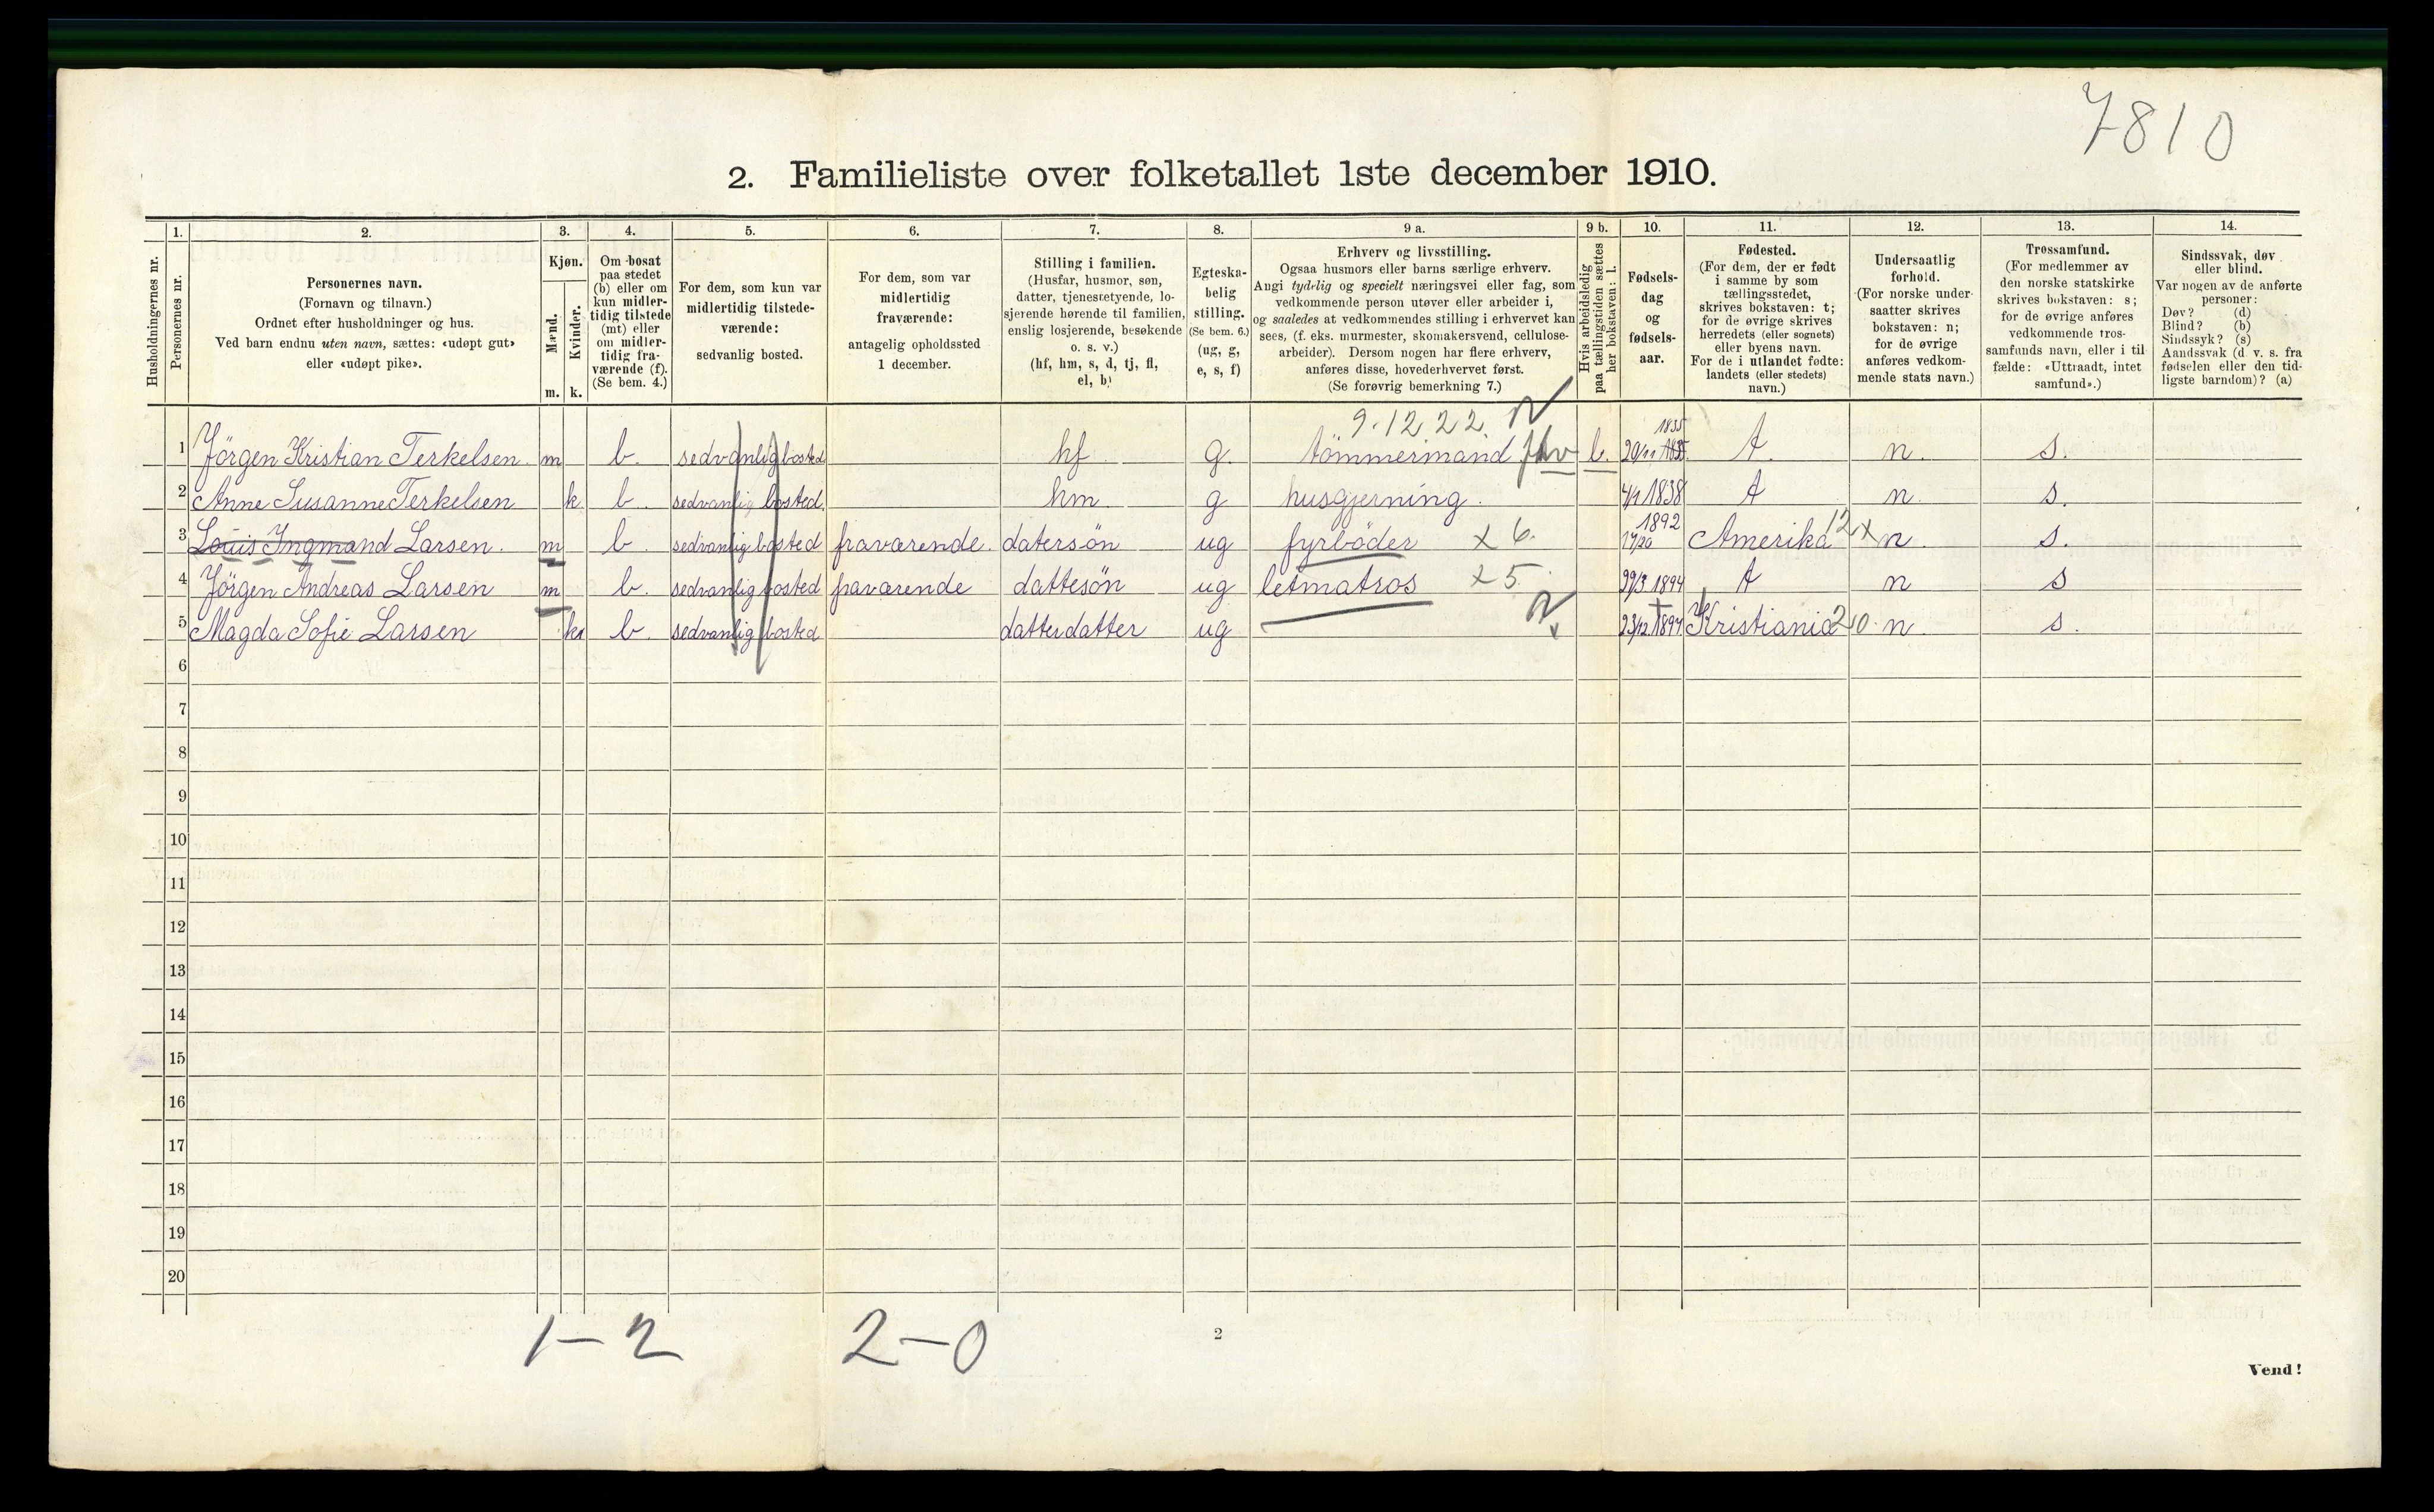 7810
2. Familieliste over folketallet 1ste december 1910.
1. 2. 3. 4. 5. 6. 7. 8. 9 a. 9 b. 10. 11. 12. 13. 14.
Husholdningernes nr.
Personernes nr.
Personernes navn.
(Fornavn og tilnavn.)
Ordnet efter husholdninger og hus.
Ved barn endnu uten navn, sættes: «udøpt gut»
eller «udøpt pike».
Kjøn.
Mænd.
Kvinder.
m. k.
Om bosat
paa stedet
(b) eller om
kun midler-
tidig tilstede
(mt) eller
om midler-
tidig fra-
værende (f).
(Se bem. 4.)
For dem, som kun var
midlertidig tilstede-
værende:
sedvanlig bosted.
For dem, som var
midlertidig
fraværende:
antagelig opholdssted
1 december.
Stilling i familien.
(Husfar, husmor, søn,
datter, tjenestetyende, lo-
sjerende hørende til familien,
enslig losjerende, besøkende
o. s. v.)
(hf, hm, s, d, tj, fl,
el, b)
Egteska-
belig
stilling.
(Se bem. 6.)
(ug, g,
e, s, f)
Erhverv og livsstilling.
Ogsaa husmors eller barns særlige erhverv.
Angi tydelig og specielt næringsvei eller fag, som
vedkommende person utøver eller arbeider i,
og saaledes at vedkommendes stilling i erhvervet kan
sees, (f. eks. murmester, skomakersvend, cellulose-
arbeider). Dersom nogen har flere erhverv,
anføres disse, hovederhvervet først.
(Se forøvrig bemerkning 7.)
Hvis arbeidsledig
paa tællingstiden sættes
her bokstaven: l.
Fødsels-
dag
og
fødsels-
aar.
Fødested.
(For dem, der er født
i samme by som
tællingsstedet,
skrives bokstaven: t;
for de øvrige skrives
herredets (eller sognets)
eller byens navn.
For de i utlandet fødte:
landets (eller stedets)
navn.)
Undersaatlig
forhold.
(For norske under-
saatter skrives
bokstaven: n;
for de øvrige
anføres vedkom-
mende stats navn.)
Trossamfund.
(For medlemmer av
den norske statskirke
skrives bokstaven: s;
for de øvrige anføres
vedkommende tros-
samfunds navn, eller i til-
fælde: «Uttraadt, intet
samfund».)
Sindssvak, døv
eller blind.
Var nogen av de anførte
personer:
Døv? (d)
Blind? (b)
Sindssyk? (s)
Aandssvak (d. v. s. fra
fødselen eller den tid-
ligste barndom)? (a)
9.12.22.
1 Jörgen Kristian Terkelsen. m b. sedvanlig bosted hf g. tömmermand fhv l. 20/11 1835 t n. s.
2 Anne Susanne Terkelsen k. b. sedvanlig bosted. hm g husgjerning. 4/1 1838 t n. s.
3 Louis Ingmand Larsen. m b. sedvanlig bosted fraværende. datersön ug fyrböder x 6. 1892 Amerika 12 x n. s.
4 Jörgen Andreas Larsen m b. sedvanlig bosted fraværende dattesön ug letmatros x 5. 29/3 1894 t n s
5 Magda Sofie Larsen k b. sedvanlig bosted datterdatter ug 23/12 1897 Kristiania 20 n. s.
6
7
8
9
10
11
12
13
14
15
16
17
18
19
20
1-2 2-0
2
Vend!